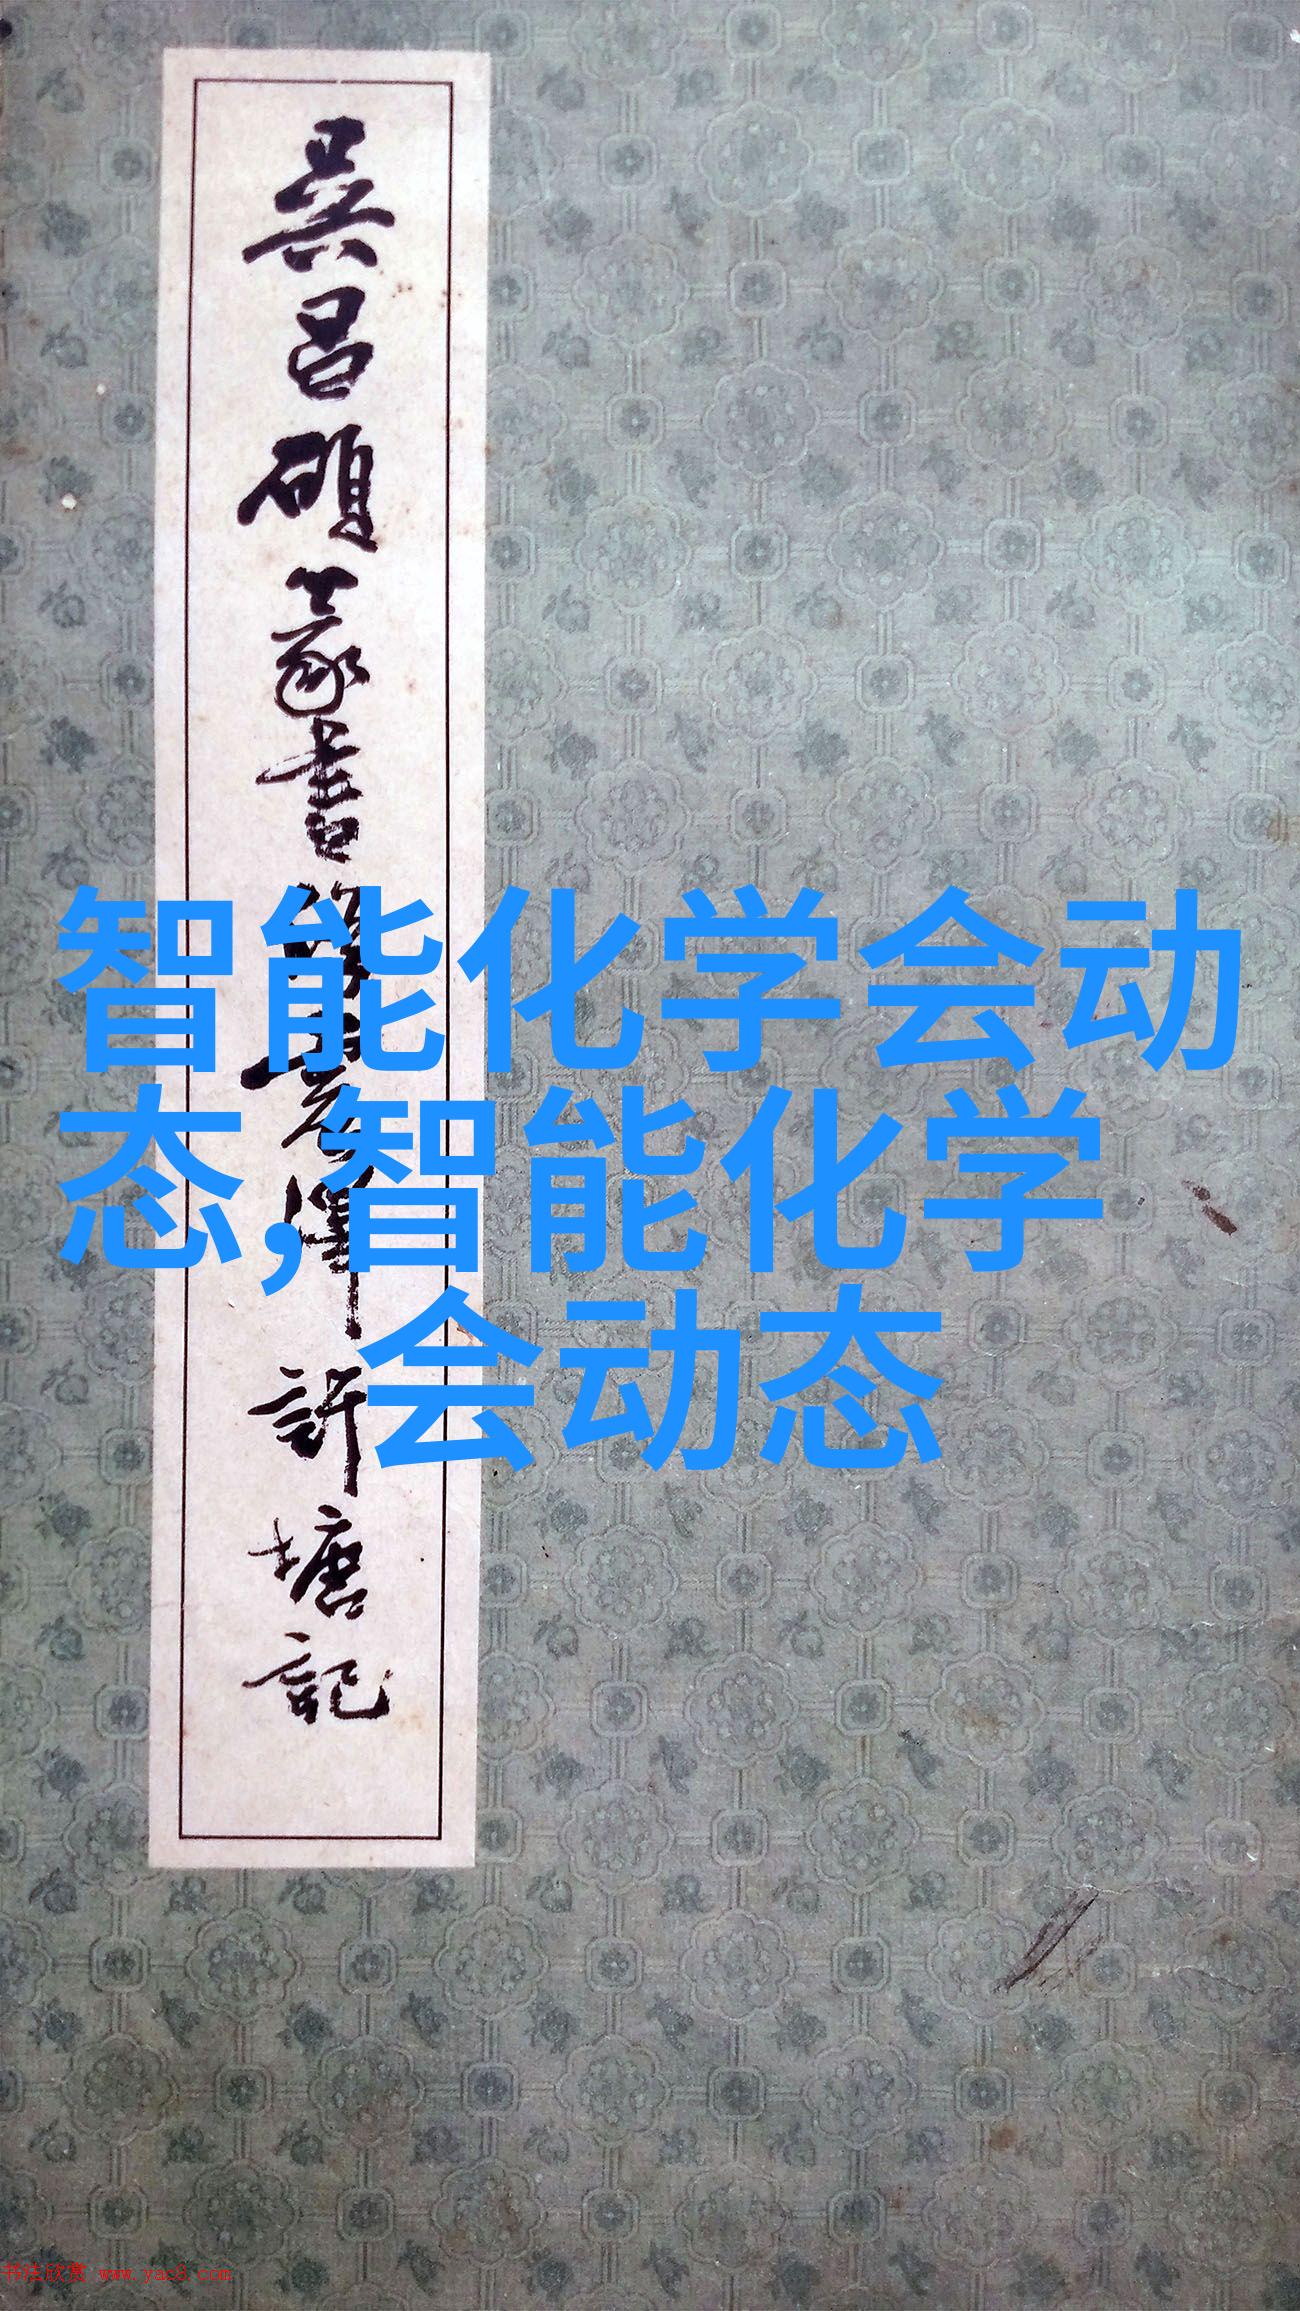 吴昌硕篆书修震泽许塘记
智能化学会动
态,智能化学
会动态
书法欣赏 www.yac8.com